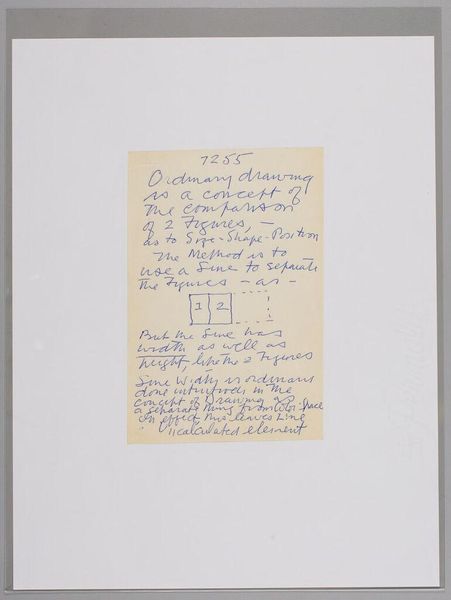 1255
Ordinary drawing
is a concept of
the comparison
of 2 Figures, —
as to Size-Shape-Position
The Method is to
use a Line to separate
the Figures — as —
1 2
But the Line has
width as well as
height, like the 2 Figures
Line Width is
done in the
concept of Drawing as
a separate thing from Color-Space
In effect this leaves Line
calculated element